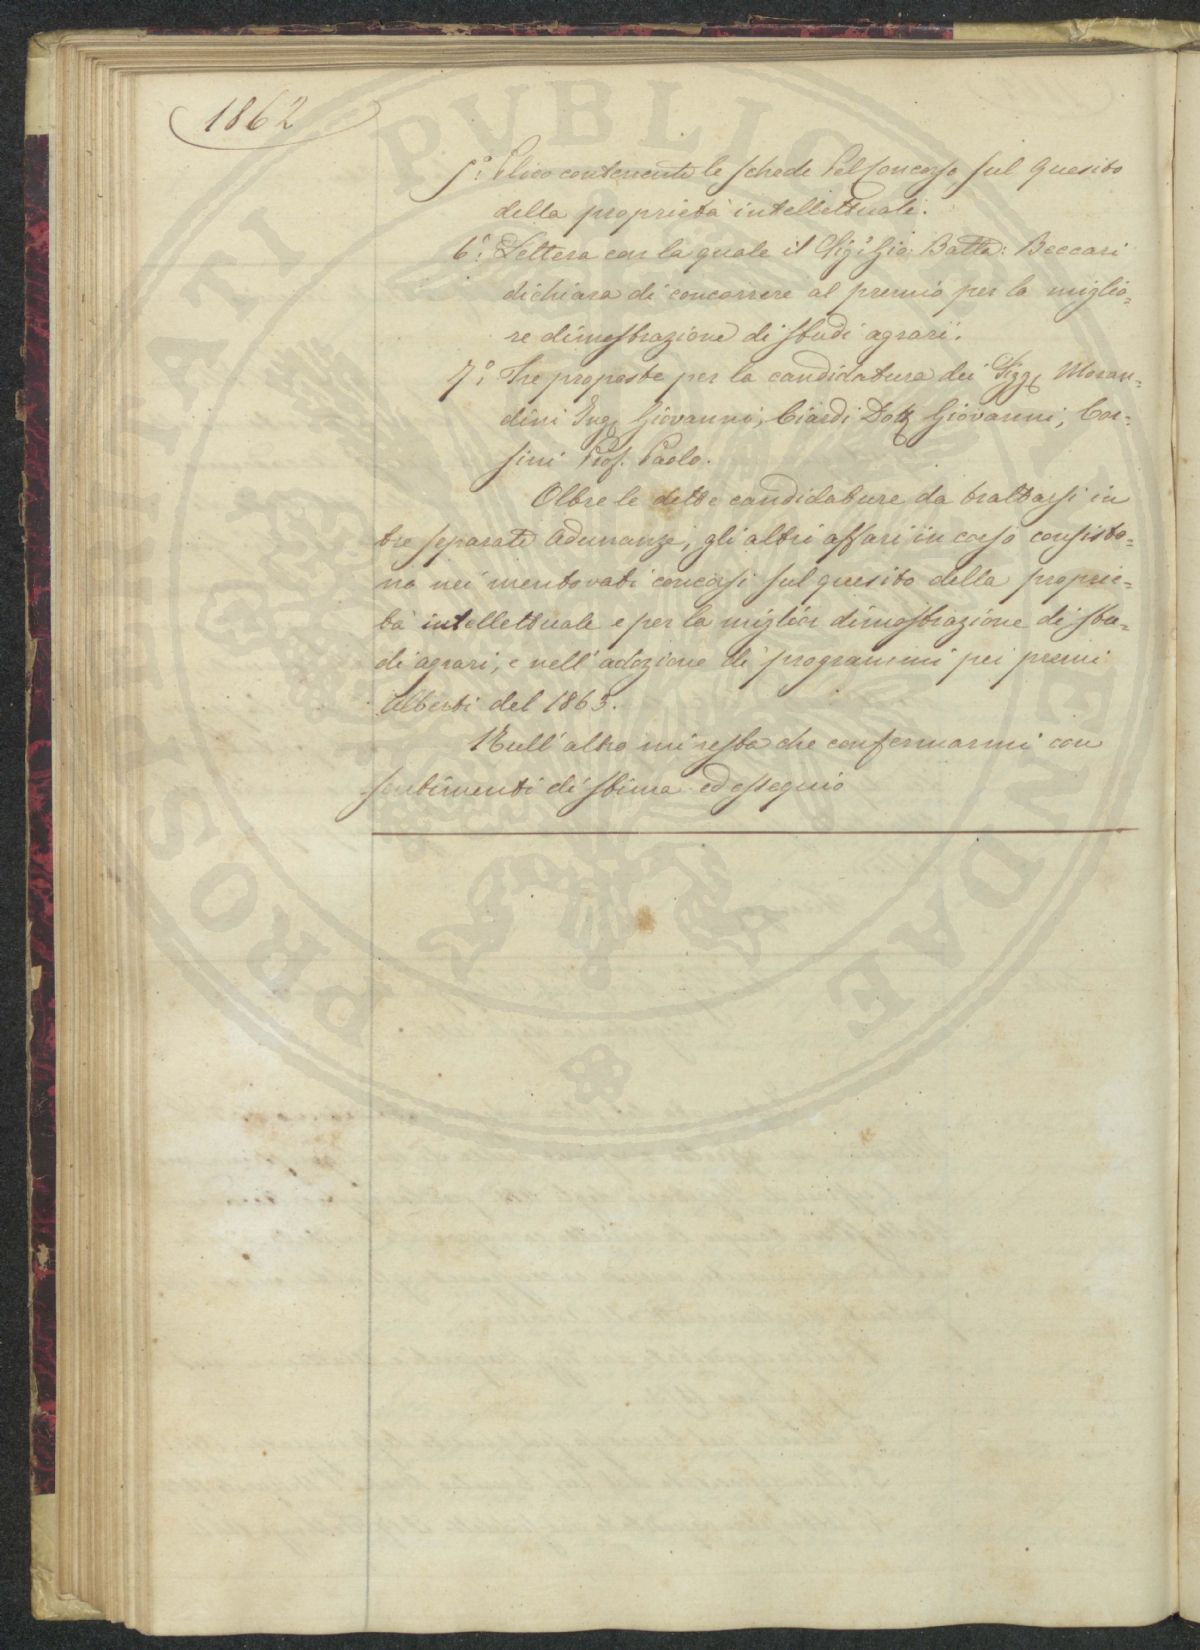 1862
5.° Plico contenente le schede pel Concorso sul Quesito
della proprietà intellettuale.
6.° Lettera con la quale il Sig.r Gio. Batta: Beccari
dichiara di concorrere al premio per la miglio=
re dimostrazione di studi agrarii.
7.° Tre proposte per la candidatura dei Sigg. Moran=
dini Ing. Giovanni, Ciardi Dott. Giovanni, Cor=
sini Prof. Paolo.
Oltre le dette candidature da trattarsi in
tre separate Adunanze, gli altri affari in corso consisto=
no nei mentovati concorsi sul quesito della proprie=
tà intellettuale e per la miglior dimostrazione di stu=
di agrari, e nell'adozione di programmi pei premi
Alberti del 1863.
Null'altro mi resta che confermarmi con
sentimenti di stima ed ossequio
PROSPERITATI PVBLICAE AVGENDAE